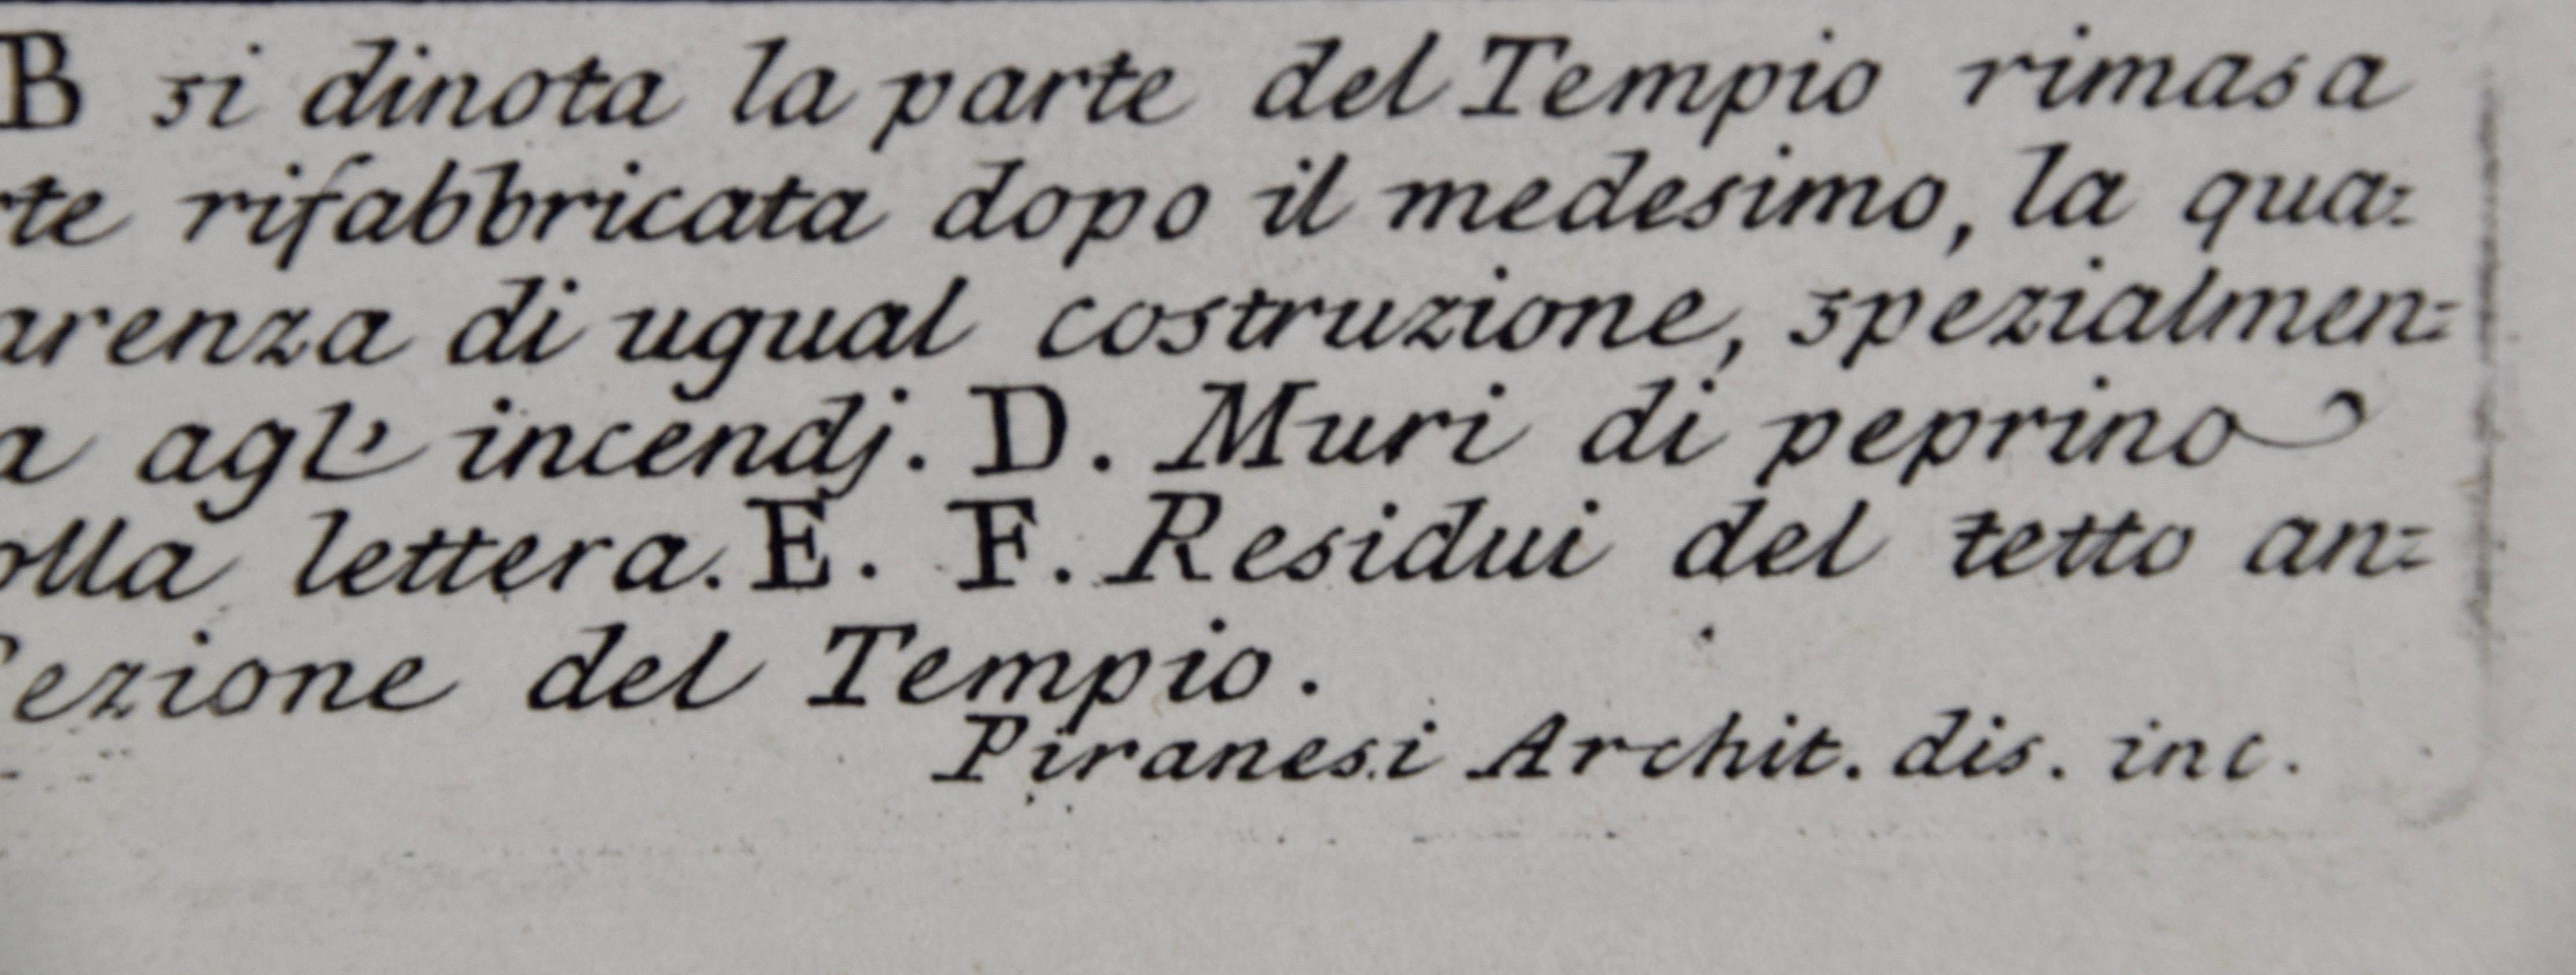 B si dinota la parte del Tempio rimasa
rifabbricata dopo il medesimo, la qua=
arenza di ugual costruzione, spezialmen=
a agl' incendj. D. Muri di peprino
olla lettera. E. F. Residui del tetto an=
ezione del Tempio.
Piranesi Archit. dis. inc.